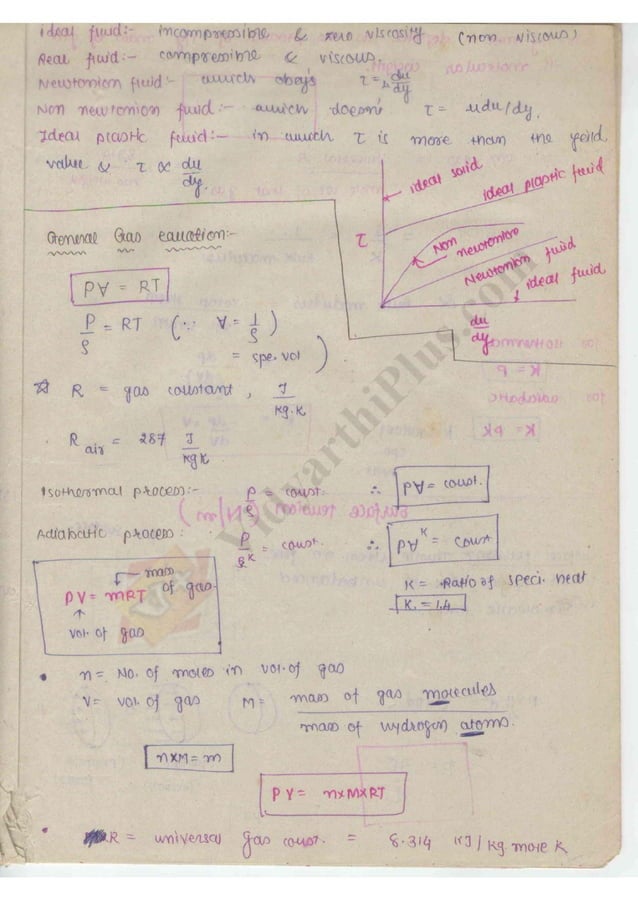 ideal fluid:- incompressible & zero viscosity (non viscous)
Real fluid:- compressible & viscous.
Newtonion fluid:- which obeys τ = μ du/dy
Non newtonion fluid:- which doesn't τ = μdu/dy.
Ideal plastic fluid:- in which τ is more than the yeild
value & τ ∝ du/dy.
ideal solid
ideal plastic fluid
τ
Non newtonion
Newtonion fluid
ideal fluid
du/dy
General Gas equation:-
P∀ = RT
P/ρ = RT (∵ ∀ = 1/ρ
= spe. vol)
☆ R = gas constant, J/kg.K
R air = 287 J/kgK
Isothermal process:- P/ρ = const. ∴ P∀ = const.
Adiabatic process: P/ρ^K = const. ∴ P∀^K = const
K = Ratio of speci. heat
K = 1.4
mass of gas
PV = mRT
vol. of gas
• n = No. of moles in vol. of gas
V = vol. of gas M = mass of gas molecules / mass of hydrogen atoms.
n×M = m
PV = n×M×RT
• R = universal gas const. = 8.314 KJ/kg.mole K
VidyarthiPlus.com